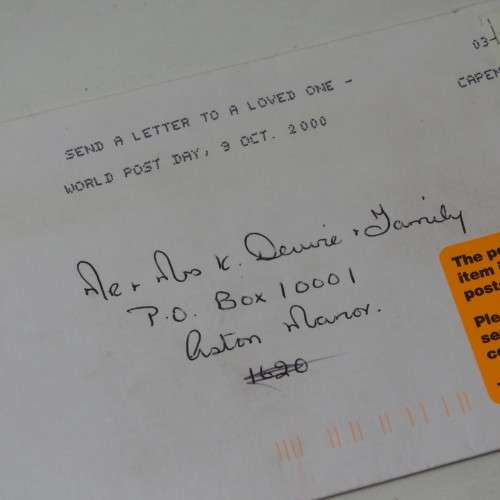 03-
CAPEM
SEND A LETTER TO A LOVED ONE -
WORLD POST DAY, 9 OCT. 2000
Mr + Mrs K. Dewie + Family
P.O. Box 10001
Aston Manor.
1620
The po
item i
posts
Ple
se
co